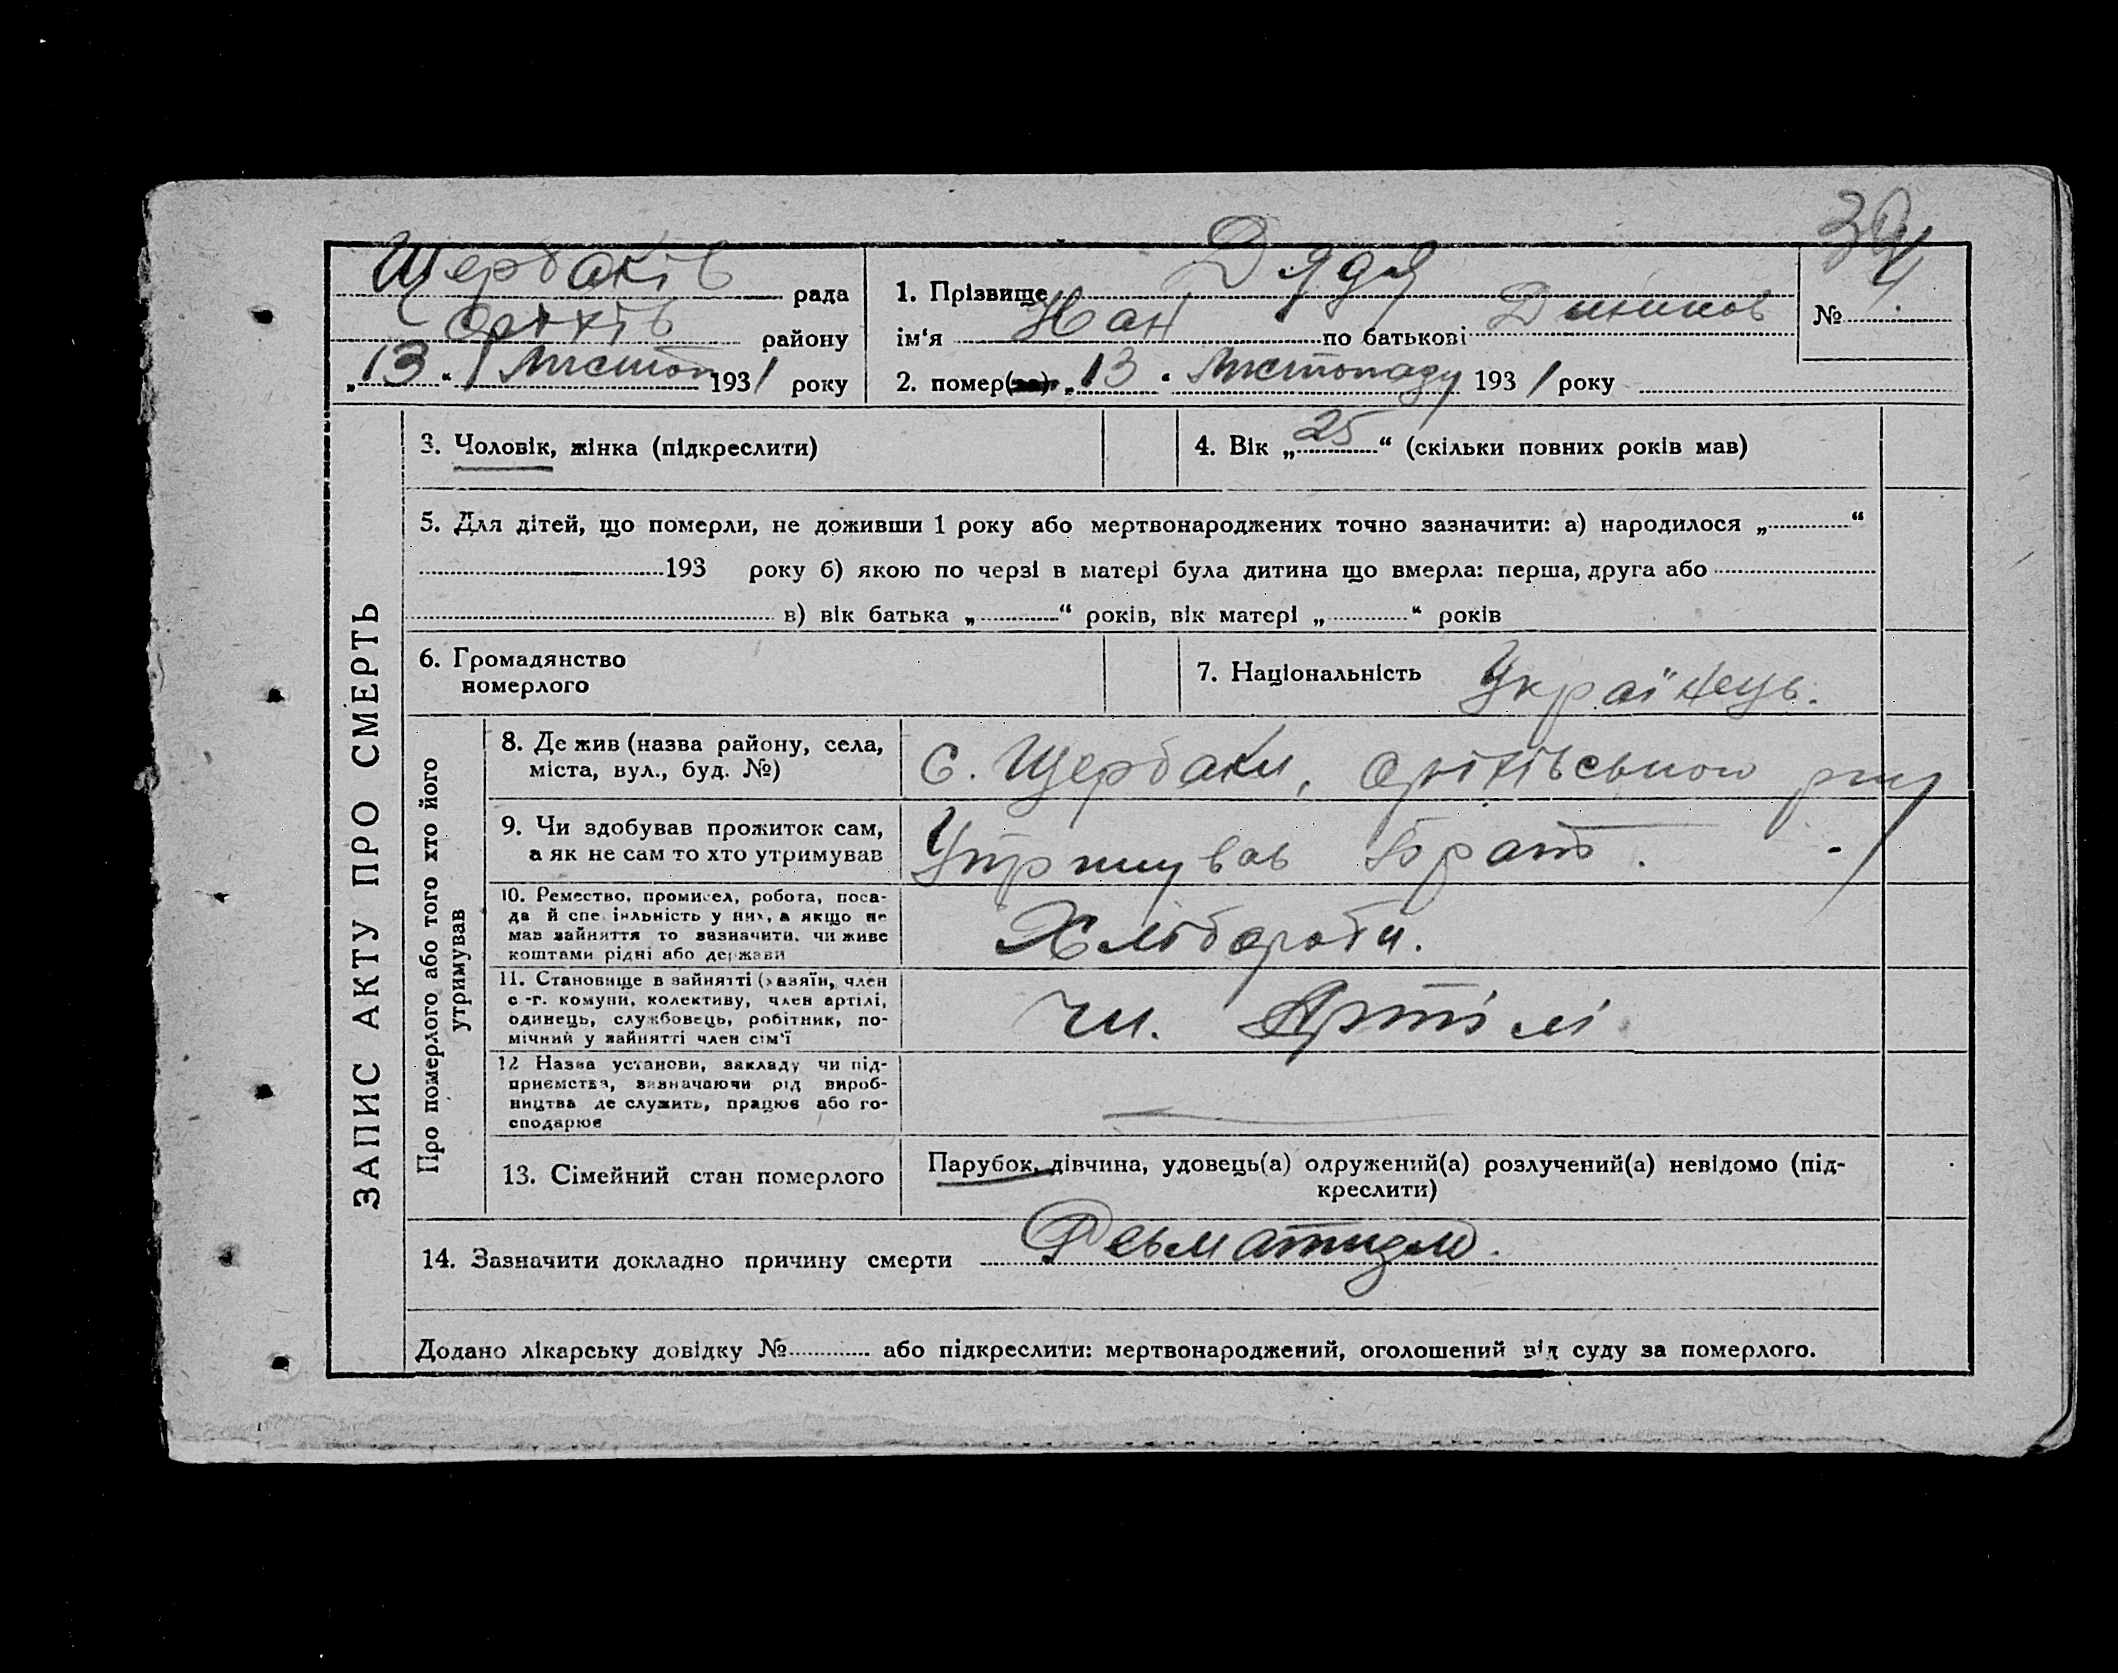 Щербаків рада
Оріхів району
„13“ Листоп 1931 року
1. Прізвище Дядя
ім‘я по батькові
2. помер(ла) „13“ Листопаду 1931 року
№ 4
ЗАПИС АКТУ ПРО СМЕРТЬ
3. Чоловік, жінка (підкреслити)
4. Вік „25“ (скільки повних років мав)
5. Для дітей, що померли, не доживши 1 року або мертвонароджених точно зазначити: а) народилося „ “
193 року б) якою по черзі в матері була дитина що вмерла: перша, друга або
в) вік батька „ “ років, вік матері „ “ років
6. Громадянство
померлого
7. Національність Українець.
Про померлого або того хто його
утримував
8. Де жив (назва району, села,
міста, вул., буд. №)
с. Щербаки, Оріхівського р-ну
9. Чи здобував прожиток сам,
а як не сам то хто утримував
Утримував брат.
10. Ремество, промисел, робота, поса-
да й спеціяльність у них, а якщо не
мав зайняття то зазначити, чи живе
коштами рідні або держави
Хлібороби.
11. Становище в зайнятті (хазяїн, член
с.-г. комуни, колективу, член артілі,
одинець, службовець, робітник, по-
мічний у зайнятті член сім‘ї
чл. Артілі
12 Назва установи, закладу чи під-
приємства, зазначаючи рід вироб-
ництва де служить, працює або го-
сподарює
13. Сімейний стан померлого
Парубок, дівчина, удовець(а) одружений(а) розлучений(а) невідомо (під-
креслити)
14. Зазначити докладно причину смерти Ревматизм.
Додано лікарську довідку № або підкреслити: мертвонароджений, оголошений від суду за померлого.